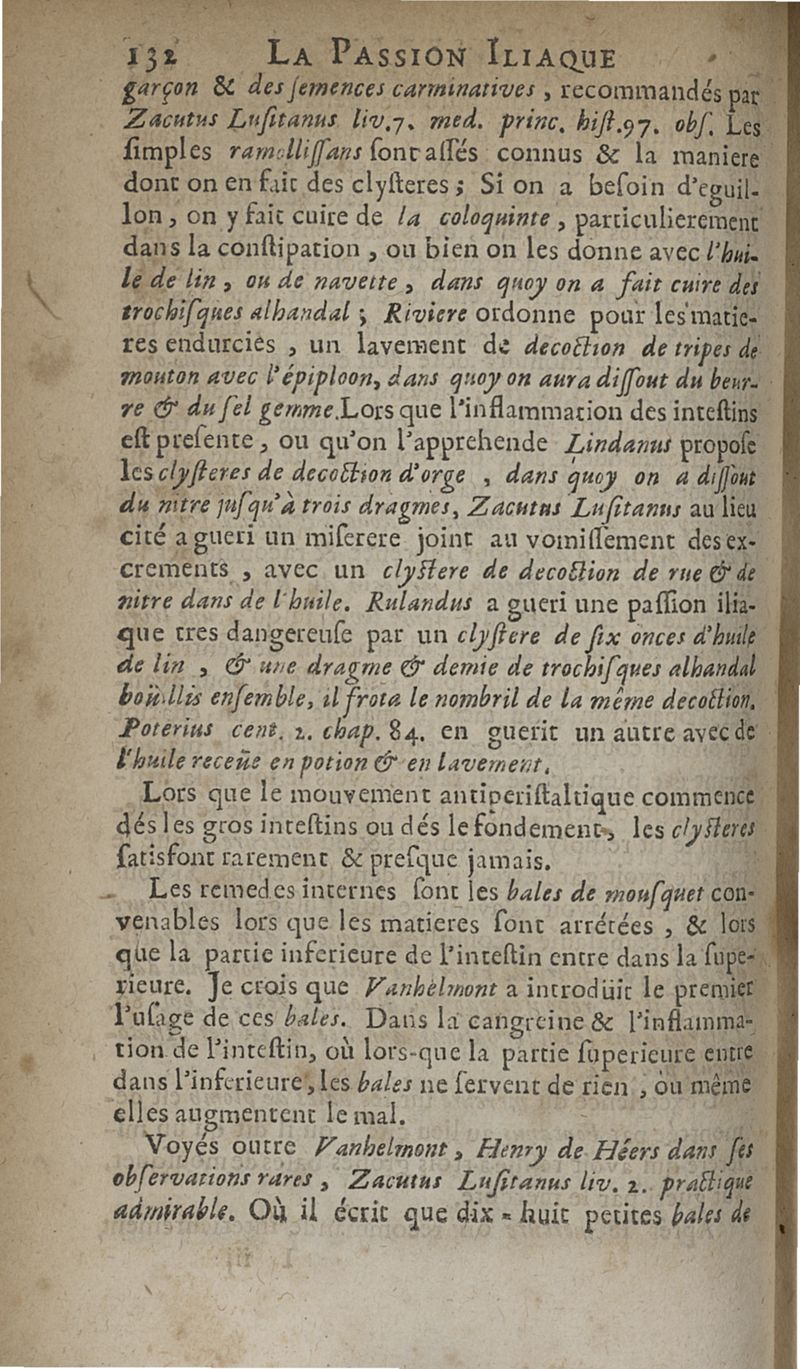 132 LA PASSION ILIAQUE
garçon & des ſemences carminatives , recommandés par
Zacutus Luſitanus liv.7. med. princ. hiſt.97. obſ. Les
ſimples ramolliſſans ſont aſſés connus & la maniere
dont on en fait des clyſteres ; Si on a beſoin d'eguil-
lon , on y fait cuire de la coloquinte , particulierement
dans la conſtipation , ou bien on les donne avec l'hui-
le de lin , ou de navette , dans quoy on a fait cuire des
trochiſques alhandal ; Riviere ordonne pour les matie-
res endurciës , un lavement de decoction de tripes de
mouton avec l'épiploon, dans quoy on aura diſſout du beur-
re & du ſel gemme.Lors que l'inflammation des inteſtins
eſt preſente , ou qu'on l'apprehende Lindanus propoſe
les clyſteres de decoction d'orge , dans quoy on a diſſout
du nitre juſqu'à trois dragmes, Zacutus Luſitanus au lieu
cité a gueri un miſerere joint au vomiſſement des ex-
crements , avec un clyſtere de decoction de rue & de
nitre dans de l'huile. Rulandus a gueri une paſſion ilia-
que tres dangereuſe par un clyſtere de ſix onces d'huile
de lin , & une dragme & demie de trochiſques alhandal
boüillis enſemble, il frota le nombril de la même decoction.
Poterius cent. 2. chap. 84. en guerit un autre avec de
l'huile receüe en potion & en lavement.
Lors que le mouvement antiperiſtaltique commence
dés les gros inteſtins ou dés le fondement, les clyſteres
ſatisfont rarement & preſque jamais.
Les remedes internes ſont les bales de mouſquet con-
venables lors que les matieres ſont arrétées , & lors
que la partie inferieure de l'inteſtin entre dans la ſupe-
rieure. Je crois que Vanhelmont a introduit le premier
l'uſage de ces bales. Dans la cangreine & l'inflamma-
tion de l'inteſtin, où lors-que la partie ſuperieure entre
dans l'inferieure, les bales ne ſervent de rien , ou même
elles augmentent le mal.
Voyés outre Vanhelmont , Henry de Héers dans ſes
obſervations rares , Zacutus Luſitanus liv. 2. practique
admirable. Où il écrit que dix - huit petites bales de